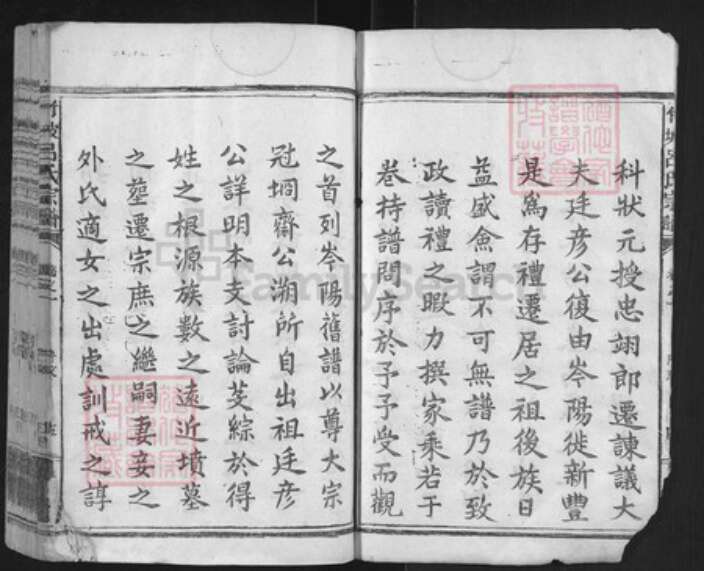 科狀元授忠翊郎遷諫議大
夫廷彥公復由岑陽徙新豐
是爲存禮遷居之祖後族日
益盛僉謂不可無譜乃於致
政讀禮之暇力撰家乘若干
卷持譜問序於予予受而觀
之首列岑陽舊譜以尊大宗
冠坰齋公溯所自出祖廷彥
公詳明本支討論芟綜於得
姓之根源族數之遠近墳墓
之塋遷宗庶之繼嗣妻妾之
外氏適女之出處訓戒之諄
呂氏宗譜
FamilySearch